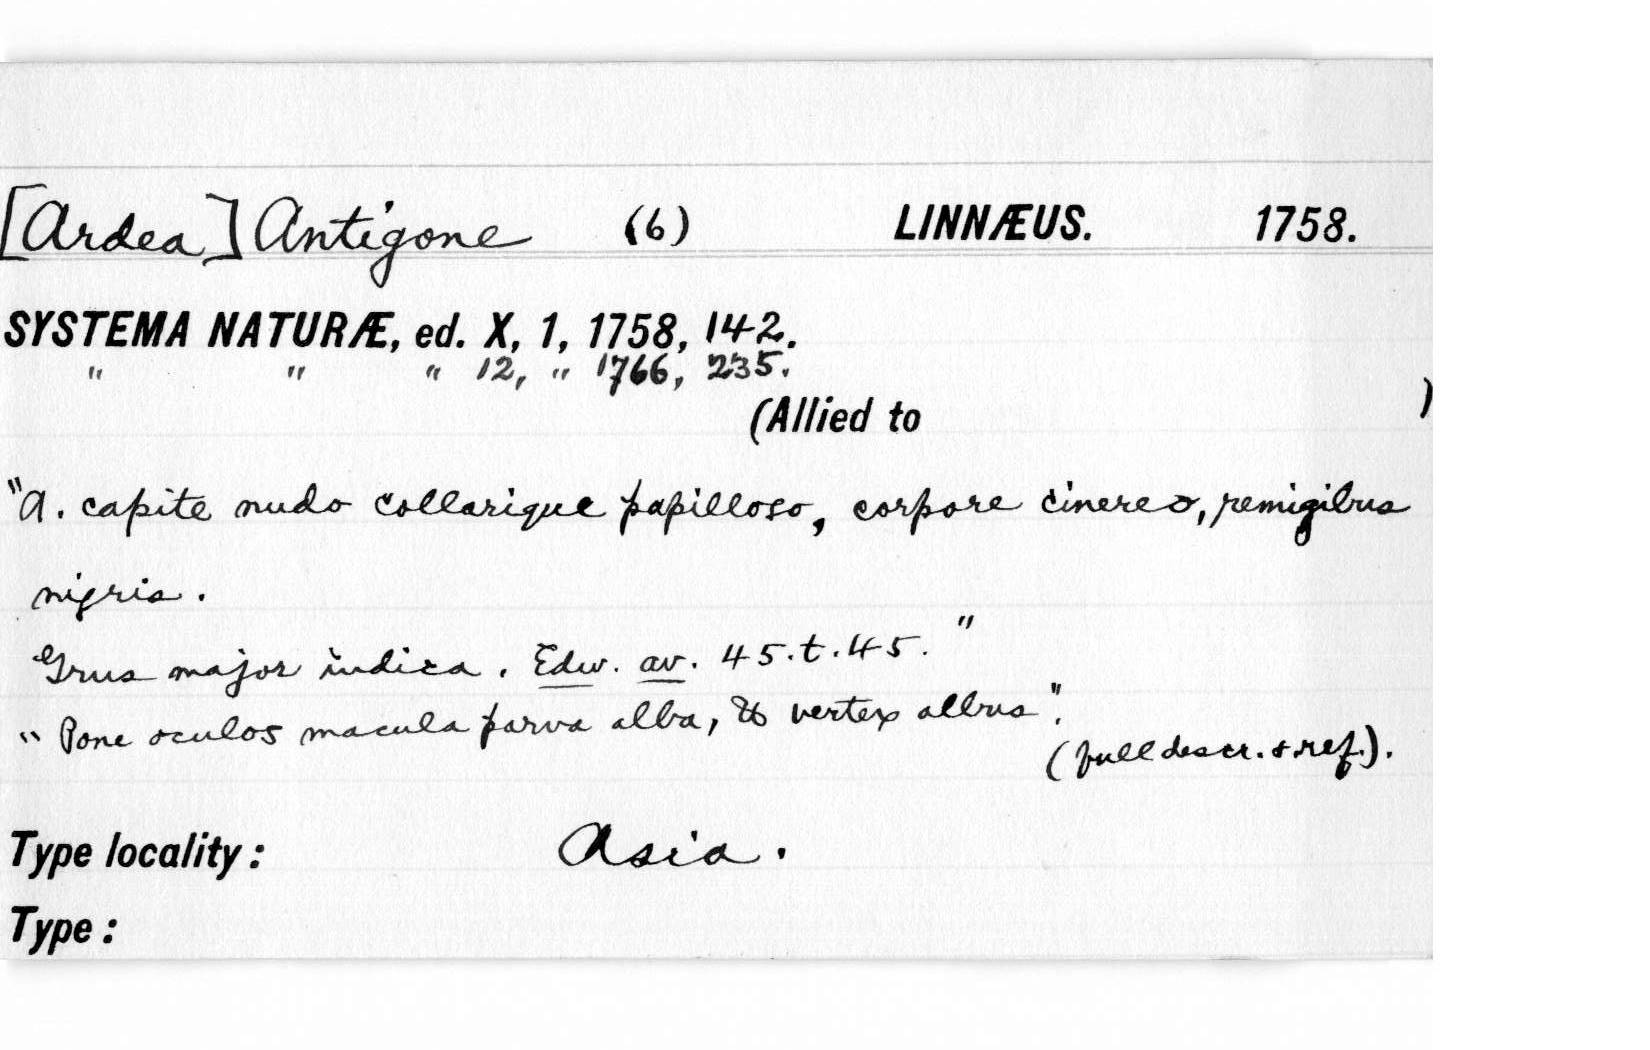 [Ardea] Antigone (6) LINNÆUS. 1758.
SYSTEMA NATURÆ, ed. X, 1, 1758, 142.
" " " 12, " 1766, 235.
(Allied to )
"A. capite nudo collarique papilloso, corpore cinereo, remigibus
nigris.
Grus major indica. Edw. av. 45. t. 45."
"Pone oculos macula parva alba, & vertex albus".
(full descr. & ref.).
Type locality: Asia.
Type: